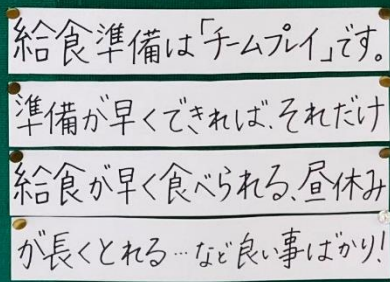 給食準備は「チームプレイ」です。
準備が早くできれば、それだけ
給食が早く食べられる、昼休み
が長くとれる…など良い事ばかり!